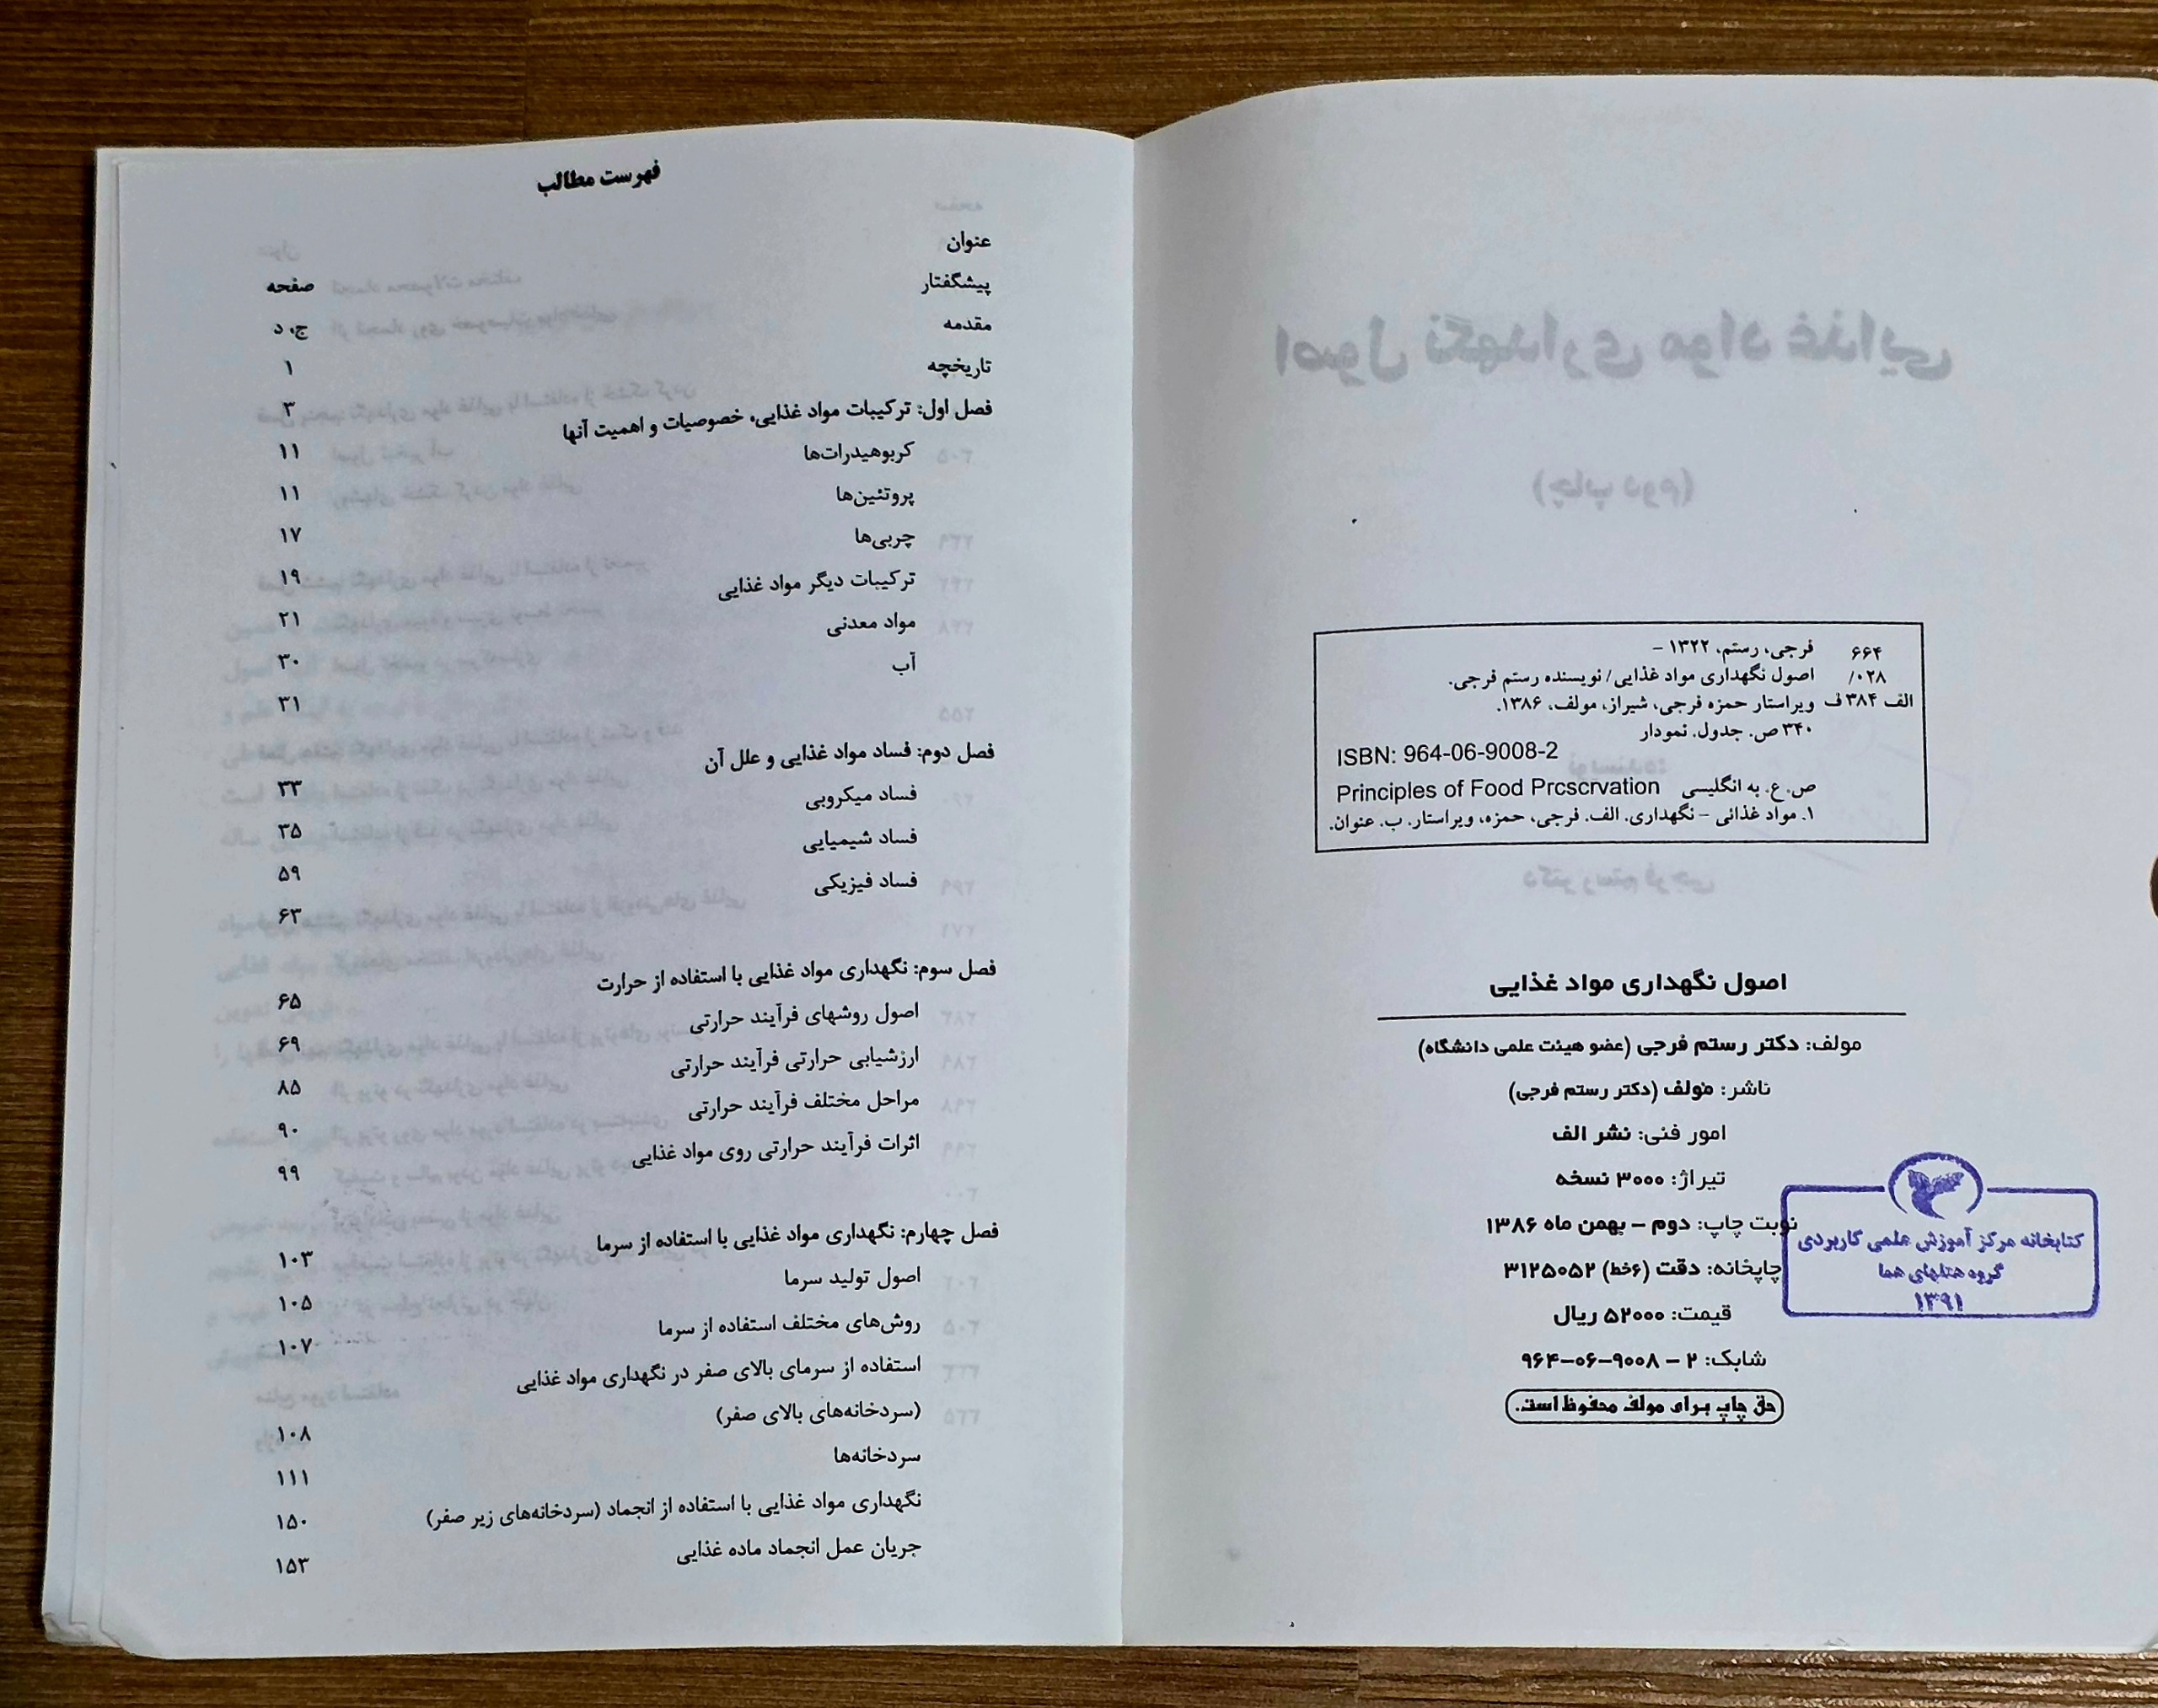 ۶۶۴ فرجی، رستم، ۱۳۲۲ –
/۰۲۸ اصول نگهداری مواد غذایی/ نویسنده رستم فرجی.
الف ۳۸۴ ف ویراستار حمزه فرجی، شیراز، مولف، ۱۳۸۶.
۳۴۰ ص. جدول. نمودار
ISBN: 964-06-9008-2
ص. ع. به انگلیسی Principles of Food Prcscrvation
۱. مواد غذائی – نگهداری. الف. فرجی، حمزه، ویراستار. ب. عنوان.
اصول نگهداری مواد غذایی
مولف: دکتر رستم فرجی (عضو هیئت علمی دانشگاه)
ناشر: مولف (دکتر رستم فرجی)
امور فنی: نشر الف
تیراژ: ۳۰۰۰ نسخه
نوبت چاپ: دوم – بهمن ماه ۱۳۸۶
چاپخانه: دقت (۶خط) ۳۱۲۵۰۵۲
قیمت: ۵۲۰۰۰ ریال
شابک: ۲ – ۹۰۰۸–۰۶–۹۶۴
حق چاپ برای مولف محفوظ است.
کتابخانه مرکز آموزش علمی کاربردی
گروه هتلهای هما
۱۳۹۱
فهرست مطالب
عنوان
صفحه
پیشگفتار
ج، د
مقدمه
۱
تاریخچه
۳
فصل اول: ترکیبات مواد غذایی، خصوصیات و اهمیت آنها
۱۱
کربوهیدرات‌ها
۱۱
پروتئین‌ها
۱۷
چربی‌ها
۱۹
ترکیبات دیگر مواد غذایی
۲۱
مواد معدنی
۳۰
آب
۳۱
فصل دوم: فساد مواد غذایی و علل آن
۳۳
فساد میکروبی
۳۵
فساد شیمیایی
۵۹
فساد فیزیکی
۶۳
فصل سوم: نگهداری مواد غذایی با استفاده از حرارت
۶۵
اصول روشهای فرآیند حرارتی
۶۹
ارزشیابی حرارتی فرآیند حرارتی
۸۵
مراحل مختلف فرآیند حرارتی
۹۰
اثرات فرآیند حرارتی روی مواد غذایی
۹۹
فصل چهارم: نگهداری مواد غذایی با استفاده از سرما
۱۰۳
اصول تولید سرما
۱۰۵
روش‌های مختلف استفاده از سرما
۱۰۷
استفاده از سرمای بالای صفر در نگهداری مواد غذایی
(سردخانه‌های بالای صفر)
۱۰۸
سردخانه‌ها
۱۱۱
نگهداری مواد غذایی با استفاده از انجماد (سردخانه‌های زیر صفر)
۱۵۰
جریان عمل انجماد ماده غذایی
۱۵۳